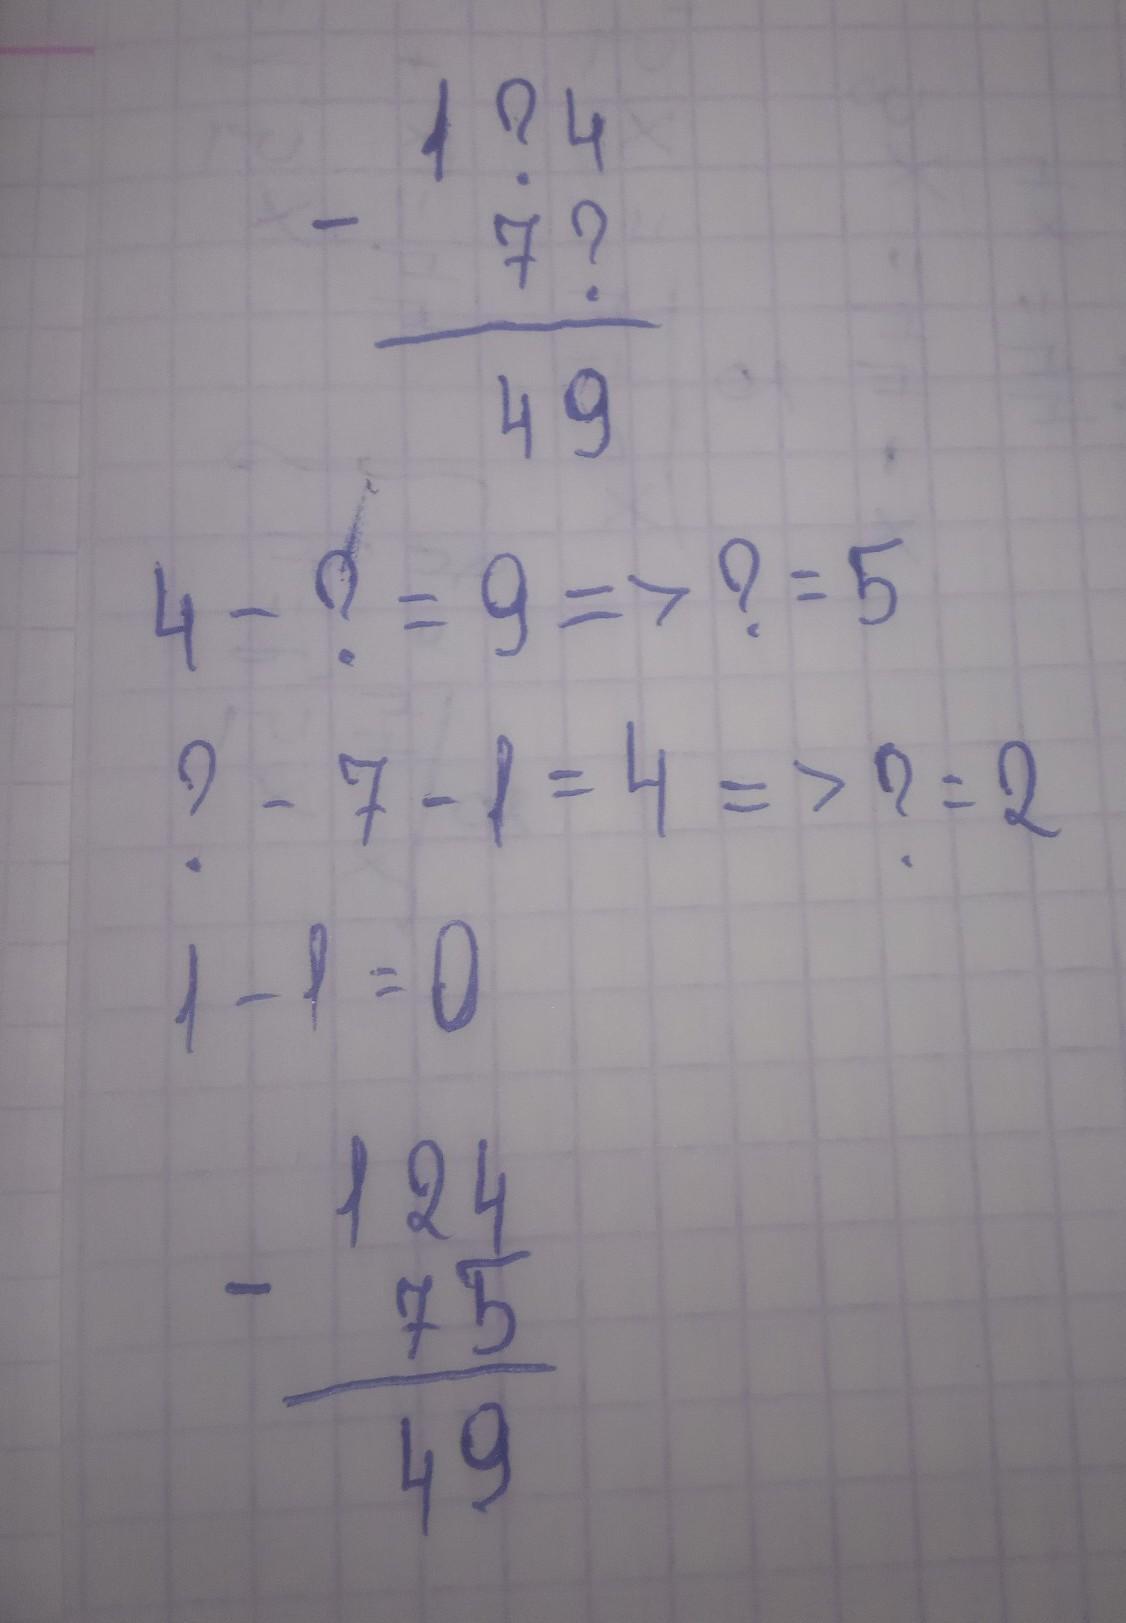 1 ? 4
- 7 ?
4 9
4 - ? = 9 => ? = 5
? - 7 - 1 = 4 => ? = 2
1 - 1 = 0
1 2 4
- 7 5
4 9